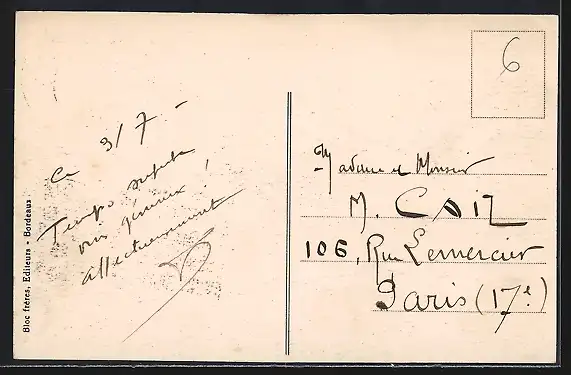 6
Ce 3/7 -
Temps superbe
affectueusement
Madame et Monsieur
M. CAIL
106, Rue Lemercier
Paris (17e)
Bloc frères, Editeurs - Bordeaux